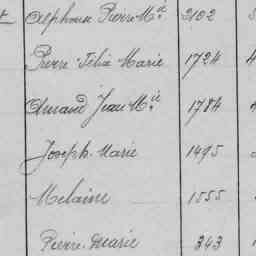 Alphonse Pierre M.ie 2102
Pierre Félix Marie 1724
Amand Jean M.ie 1784
Joseph Marie 1495
Melaine 1555
Pierre Marie 343